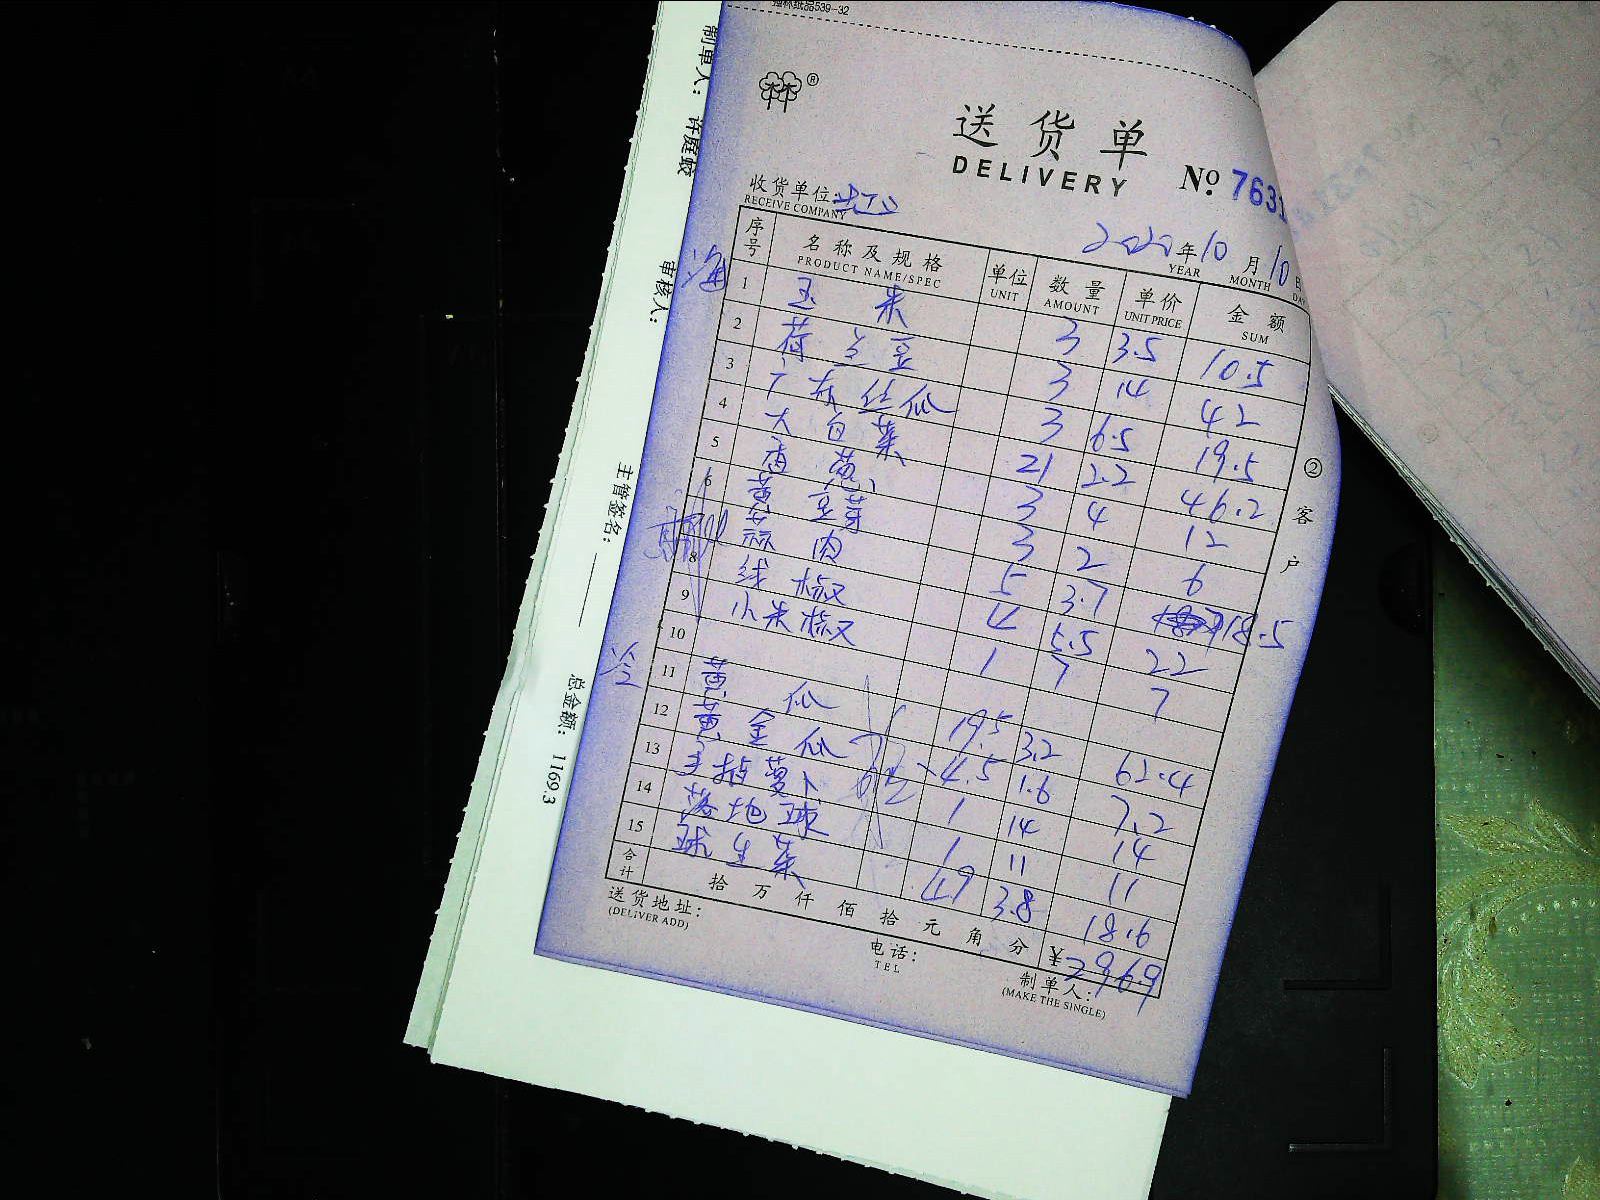 强林纸品539-32
制单人： 许庭蛟
审核人：
主管签名：
总金额： 1169.3
送货单
DELIVERY
№ 7631
收货单位：
RECEIVE COMPANY
2020年10月10日
YEAR MONTH DAY
序号 名称及规格 单位 数量 单价 金额
PRODUCT NAME/SPEC UNIT AMOUNT UNIT PRICE SUM
海
1 玉米 3 3.5 10.5
2 荷兰豆 3 14 42
3 广东丝瓜 3 6.5 19.5
4 大白菜 21 2.2 46.2
5 香葱 3 4 12
6 黄豆芽 3 2 6
蒜肉 5 3.7 18.5
8 线椒 4 5.5 22
9 小米椒 1 7 7
10
冷
11 黄瓜 19.5 3.2 62.4
12 黄金瓜 4.5 1.6 7.2
13 手指萝卜 1 14 14
14 落地球 1 11 11
15 球生菜 4.9 3.8 18.6
合计 拾万仟佰拾元角分 ¥296.9
送货地址：
(DELIVER ADD)
电话：
TEL
制单人：
(MAKE THE SINGLE)
②客户